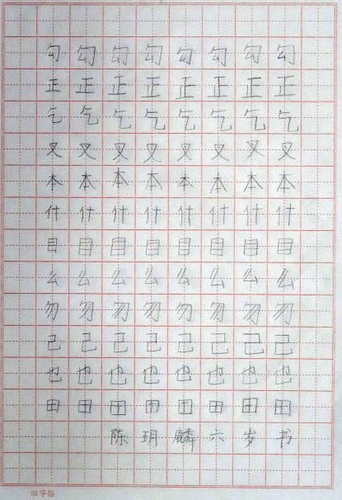 勾 勾 勾 勾 勾 勾 勾 勾
正 正 正 正 正 正 正 正
乞 乞 乞 乞 乞 乞 乞 乞
叉 叉 叉 叉 叉 叉 叉 叉
本 本 本 本 本 本 本 本
什 什 什 什 什 什 什 什
目 目 目 目 目 目 目 目
么 么 么 么 么 么 么 么
勿 勿 勿 勿 勿 勿 勿 勿
己 己 己 己 己 己 己 己
也 也 也 也 也 也 也 也
田 田 田 田 田 田 田 田
陈 玥 麟 六 岁 书
田字格